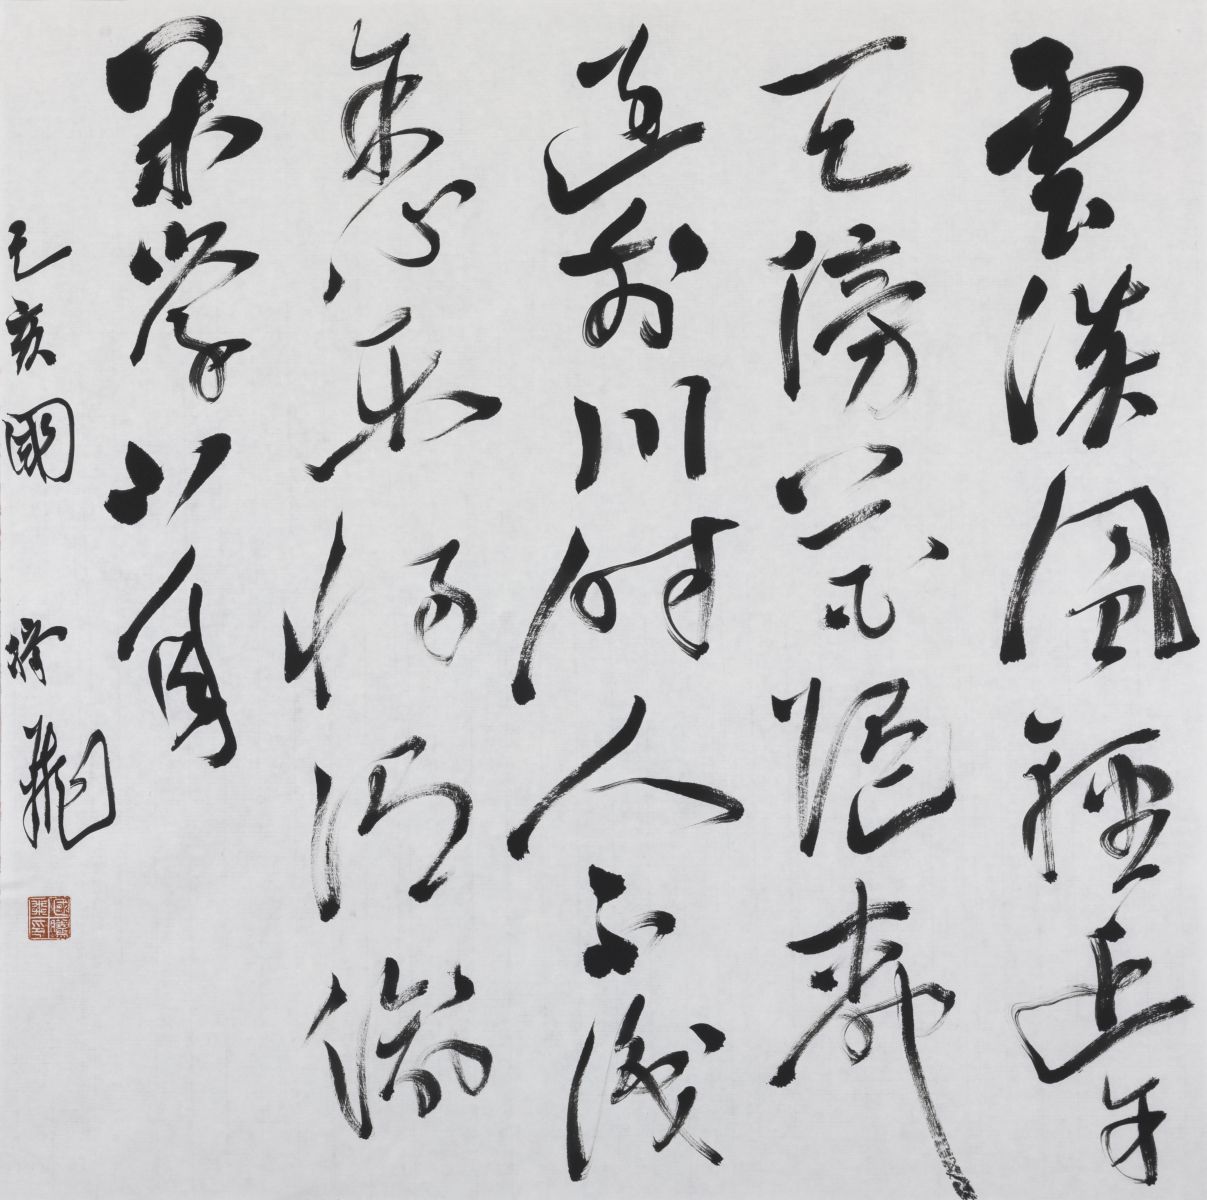 雲淡風輕近午
天傍花隨柳
過前川時人不識
余心樂將謂偷
閑學少年
己亥國